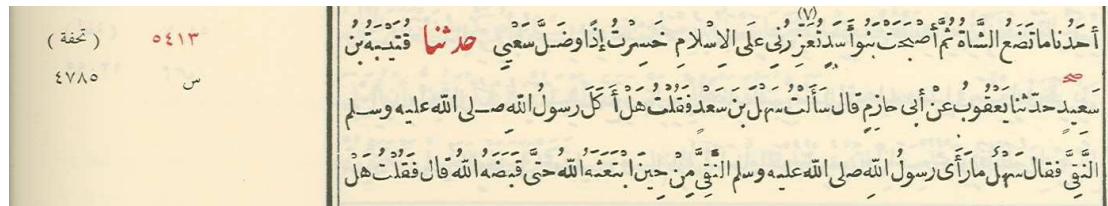 أَحَدُنا ما تَضَعُ الشَّاةُ ثُمَّ أَصْبَحَتْ بَنُو أَسَدٍ تُعَزِّرُنِي (٧) عَلَى الإِسْلامِ خَسِرْتُ إِذًا وَضَلَّ سَعْيِي حدثنا قُتَيْبَةُ بْنُ
سَعِيدٍ صح حدّثنا يَعْقُوبُ عَنْ أَبِي حازِمٍ قال سَأَلْتُ سَهْلَ بنَ سَعْدٍ فَقُلْتُ هَلْ أَكَلَ رسولُ اللهِ صلى الله عليه وسلم
النَّقِيَّ فقال سَهْلٌ ما رَأَى رسولُ اللهِ صلى الله عليه وسلم النَّقِيَّ مِنْ حِينَ ابْتَعَثَهُ اللهُ حتَّى قَبَضَهُ اللهُ قال فَقُلْتُ هَلْ
٥٤١٣ (تحفة)
س ٤٧٨٥